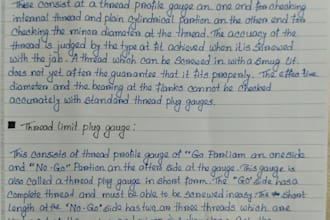 These consist at a thread profile gauge an one end for checking
internal thread and plain cylindrical portion an the other end for
checking the minor diameter at the thread. The accuracy of the
thread is judged by the type at fit achieved when it is screwed
with the job. A thread which can be screwed in with a snug fit
does not yet offer the guarantee that it fits properly. The effective
diameter and the bearing at the flanks cannot be checked
accurately with standard thread plug gauges.
■ Thread limit plug gauge :
This consists of thread profile gauge of "Go Portion an one side
and "No-Go" Portion an the other side at the gauge. This gauge is
also called a thread plug gauge in short form. The "GO" side has a
complete thread and must be able to be screwed in easy. The short
length at the "No-Go" side has two or three threads which are